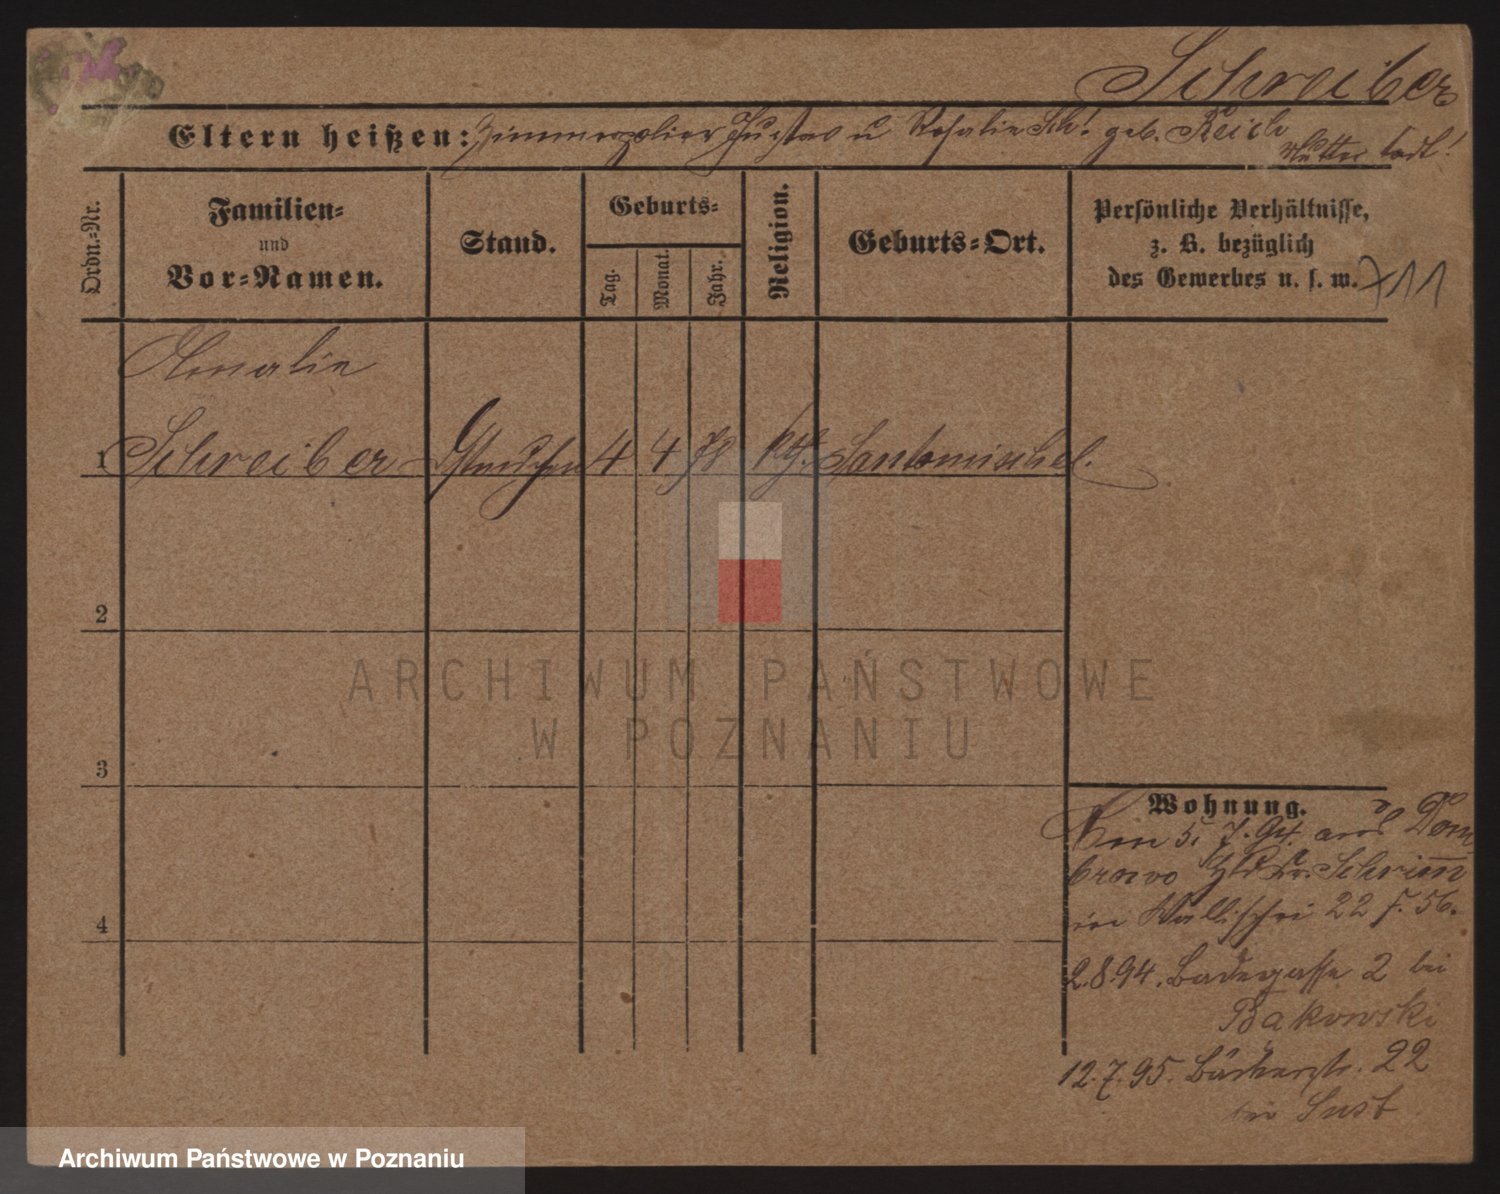 Schreiber
Eltern heißen: Zimmerpolier Gustav u Rosalie Sch! geb. Reich
Mutter todt!
Ordn.-Nr.
Familien-
und
Vor-Namen.
Stand.
Geburts-
Tag.
Monat.
Jahr.
Religion.
Geburts-Ort.
Persönliche Verhältnisse,
z. B. bezüglich
des Gewerbes u. s. w.
Amalie
1 Schreiber 4 4 78 kth. Santomischel.
2
3
4
Wohnung.
5. 7. 94. aus Dom-
browo Kr. Schrimm
in Wallischei 22 b. 56.
2.8.94. Badegasse 2 bei
Bakowski
12.7.95. Bäckerstr. 22
bei Sust
ARCHIWUM PAŃSTWOWE
W POZNANIU
Archiwum Państwowe w Poznaniu